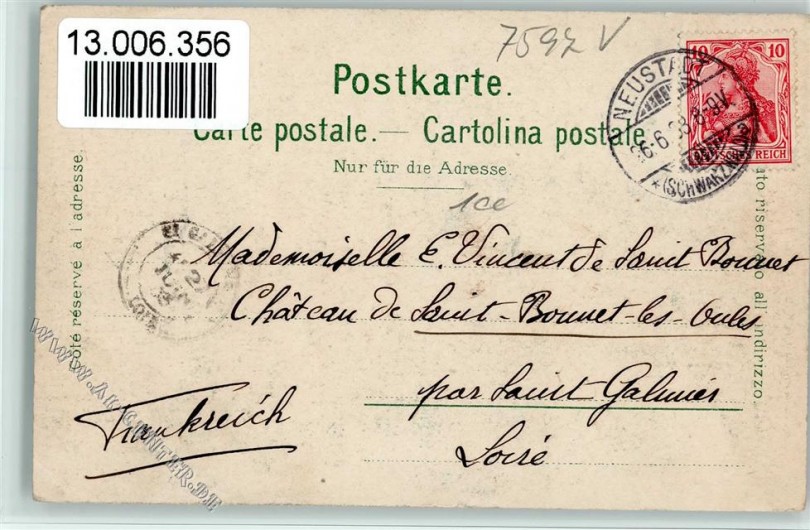 13.006.356
7592 V
10 10
DEUTSCHES REICH
NEUSTADT
6.6. 8-9V.
(SCHWARZWALD)
Postkarte.
Carte postale. — Cartolina postale
Nur für die Adresse.
1ce
Côté réservé à l'adresse.
Lato riservato all'indirizzo.
Mademoiselle E. Vincent de Saint Bonnet
Château de Saint-Bonnet-les-Oules
par Saint Galmier
Loire
Frankreich
WWW.AKCENTER.DE